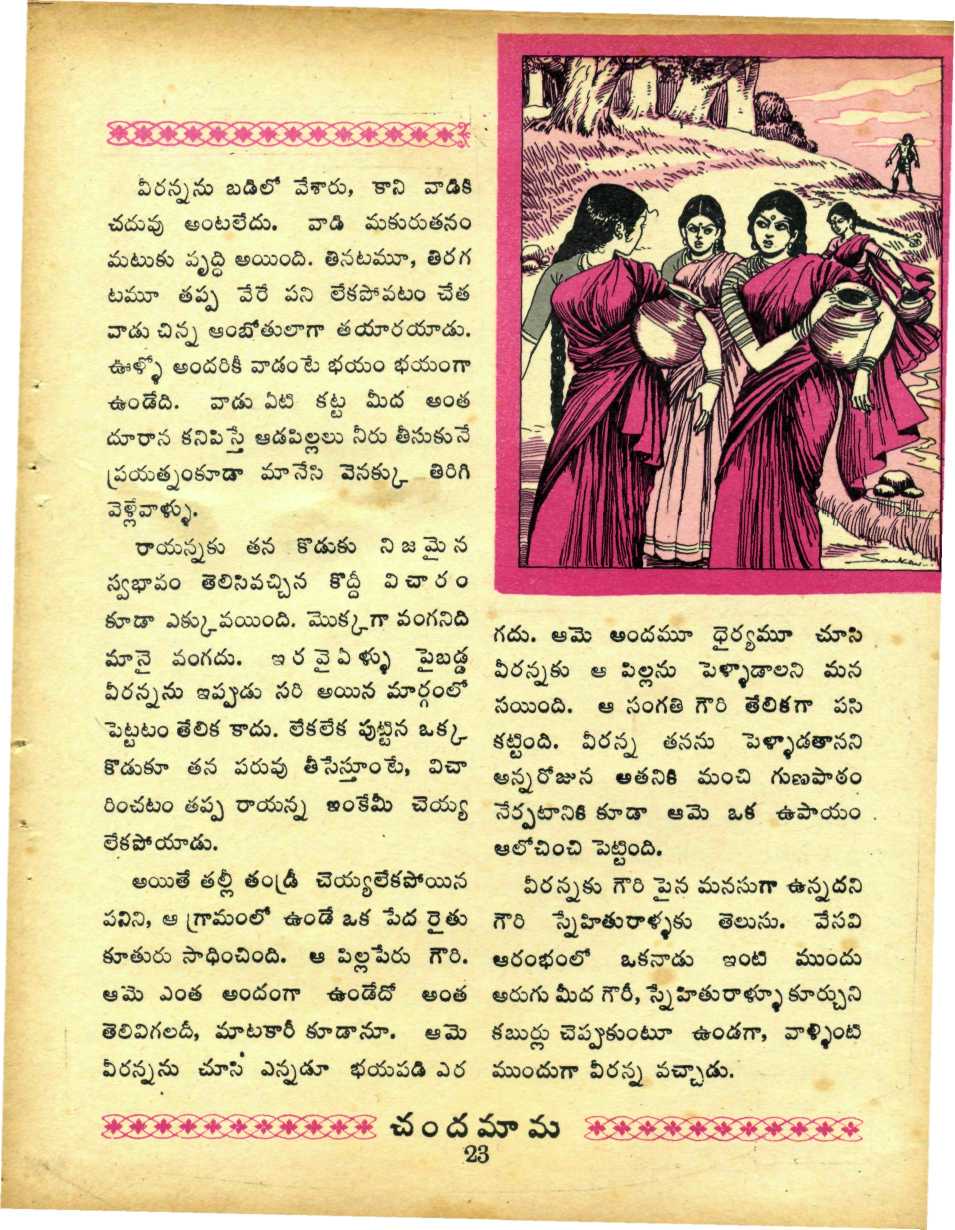 వీరన్నను బడిలో వేశారు, కాని వాడికి
చదువు అంటలేదు. వాడి మకురుతనం
మటుకు వృద్ధి అయింది. తినటమూ, తిరగ
టమూ తప్ప వేరే పని లేకపోవటం చేత
వాడు చిన్న ఆంబోతులాగా తయారయాడు.
ఊళ్ళో అందరికీ వాడంటే భయం భయంగా
ఉండేది. వాడు ఏటి కట్ట మీద అంత
దూరాన కనిపిస్తే ఆడపిల్లలు నీరు తీసుకునే
ప్రయత్నంకూడా మానేసి వెనక్కు తిరిగి
వెళ్లేవాళ్ళు.
రాయన్నకు తన కొడుకు నిజమైన
స్వభావం తెలిసివచ్చిన కొద్దీ విచారం
కూడా ఎక్కువయింది. మొక్కగా వంగనిది
మానై వంగదు. ఇరవైఏళ్ళు పైబడ్డ
వీరన్నను ఇప్పుడు సరి అయిన మార్గంలో
పెట్టటం తేలిక కాదు. లేకలేక పుట్టిన ఒక్క
కొడుకూ తన పరువు తీసేస్తూంటే, విచా
రించటం తప్ప రాయన్న ఇంకేమీ చెయ్య
లేకపోయాడు.
అయితే తల్లీ తండ్రీ చెయ్యలేకపోయిన
పనిని, ఆ గ్రామంలో ఉండే ఒక పేద రైతు
కూతురు సాధించింది. ఆ పిల్లపేరు గౌరి.
ఆమె ఎంత అందంగా ఉండేదో అంత
తెలివిగలదీ, మాటకారీ కూడానూ. ఆమె
వీరన్నను చూసి ఎన్నడూ భయపడి ఎర
గదు. ఆమె అందమూ ధైర్యమూ చూసి
వీరన్నకు ఆ పిల్లను పెళ్ళాడాలని మన
సయింది. ఆ సంగతి గౌరి తేలికగా పసి
కట్టింది. వీరన్న తనను పెళ్ళాడతానని
అన్నరోజున అతనికి మంచి గుణపాఠం
నేర్పటానికి కూడా ఆమె ఒక ఉపాయం
ఆలోచించి పెట్టింది.
వీరన్నకు గౌరి పైన మనసుగా ఉన్నదని
గౌరి స్నేహితురాళ్ళకు తెలుసు. వేసవి
ఆరంభంలో ఒకనాడు ఇంటి ముందు
అరుగు మీద గౌరీ, స్నేహితురాళ్ళూ కూర్చుని
కబుర్లు చెప్పుకుంటూ ఉండగా, వాళ్ళింటి
ముందుగా వీరన్న వచ్చాడు.
Sankar...
చందమామ
23